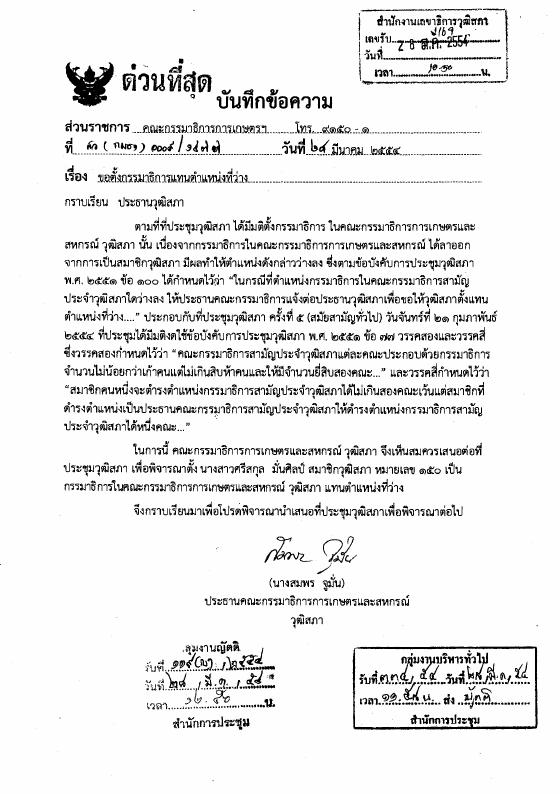 สำนักงานเลขาธิการวุฒิสภา
เลขรับ
วันที่ 28 มี.ค. 2554
เวลา 10.50 น.
ด่วนที่สุด
บันทึกข้อความ
ส่วนราชการ คณะกรรมาธิการการเกษตรฯ โทร. ๙๑๕๐ - ๑
ที่ สว (กมธ๑) ๐๐๐๙/ วันที่ ๒๘ มีนาคม ๒๕๕๔
เรื่อง ขอตั้งกรรมาธิการแทนตำแหน่งที่ว่าง
กราบเรียน ประธานวุฒิสภา
ตามที่ที่ประชุมวุฒิสภา ได้มีมติตั้งกรรมาธิการ ในคณะกรรมาธิการการเกษตรและ
สหกรณ์ วุฒิสภา นั้น เนื่องจากกรรมาธิการในคณะกรรมาธิการการเกษตรและสหกรณ์ ได้ลาออก
จากการเป็นสมาชิกวุฒิสภา มีผลทำให้ตำแหน่งดังกล่าวว่างลง ซึ่งตามข้อบังคับการประชุมวุฒิสภา
พ.ศ. ๒๕๕๑ ข้อ ๑๐๐ ได้กำหนดไว้ว่า “ในกรณีที่ตำแหน่งกรรมาธิการในคณะกรรมาธิการสามัญ
ประจำวุฒิสภาใดว่างลง ให้ประธานคณะกรรมาธิการแจ้งต่อประธานวุฒิสภาเพื่อขอให้วุฒิสภาตั้งแทน
ตำแหน่งที่ว่าง....” ประกอบกับที่ประชุมวุฒิสภา ครั้งที่ ๕ (สมัยสามัญทั่วไป) วันจันทร์ที่ ๒๑ กุมภาพันธ์
๒๕๕๔ ที่ประชุมได้มีมติงดใช้ข้อบังคับการประชุมวุฒิสภา พ.ศ. ๒๕๕๑ ข้อ ๗๗ วรรคสองและวรรคสี่
ซึ่งวรรคสองกำหนดไว้ว่า “คณะกรรมาธิการสามัญประจำวุฒิสภาแต่ละคณะประกอบด้วยกรรมาธิการ
จำนวนไม่น้อยกว่าเก้าคนแต่ไม่เกินสิบห้าคนและให้มีจำนวนยี่สิบสองคณะ...” และวรรคสี่กำหนดไว้ว่า
“สมาชิกคนหนึ่งจะดำรงตำแหน่งกรรมาธิการสามัญประจำวุฒิสภาได้ไม่เกินสองคณะเว้นแต่สมาชิกที่
ดำรงตำแหน่งเป็นประธานคณะกรรมาธิการสามัญประจำวุฒิสภาให้ดำรงตำแหน่งกรรมาธิการสามัญ
ประจำวุฒิสภาได้หนึ่งคณะ...”
ในการนี้ คณะกรรมาธิการการเกษตรและสหกรณ์ วุฒิสภา จึงเห็นสมควรเสนอต่อที่
ประชุมวุฒิสภา เพื่อพิจารณาตั้ง นางสาวศรีสกุล มั่นศิลป์ สมาชิกวุฒิสภา หมายเลข ๑๕๐ เป็น
กรรมาธิการในคณะกรรมาธิการการเกษตรและสหกรณ์ วุฒิสภา แทนตำแหน่งที่ว่าง
จึงกราบเรียนมาเพื่อโปรดพิจารณานำเสนอที่ประชุมวุฒิสภาเพื่อพิจารณาต่อไป
(นางสมพร จูมั่น)
ประธานคณะกรรมาธิการการเกษตรและสหกรณ์
วุฒิสภา
ลุ่มงานญัตติ
รับที่
วันที่ ๒๘, มี.ค., ๕๔
เวลา น.
สำนักการประชุม
กลุ่มงานบริหารทั่วไป
รับที่ วันที่ ๒๘, มี.ค., ๕๔
เวลา น. ส่ง ญัตติ
สำนักการประชุม